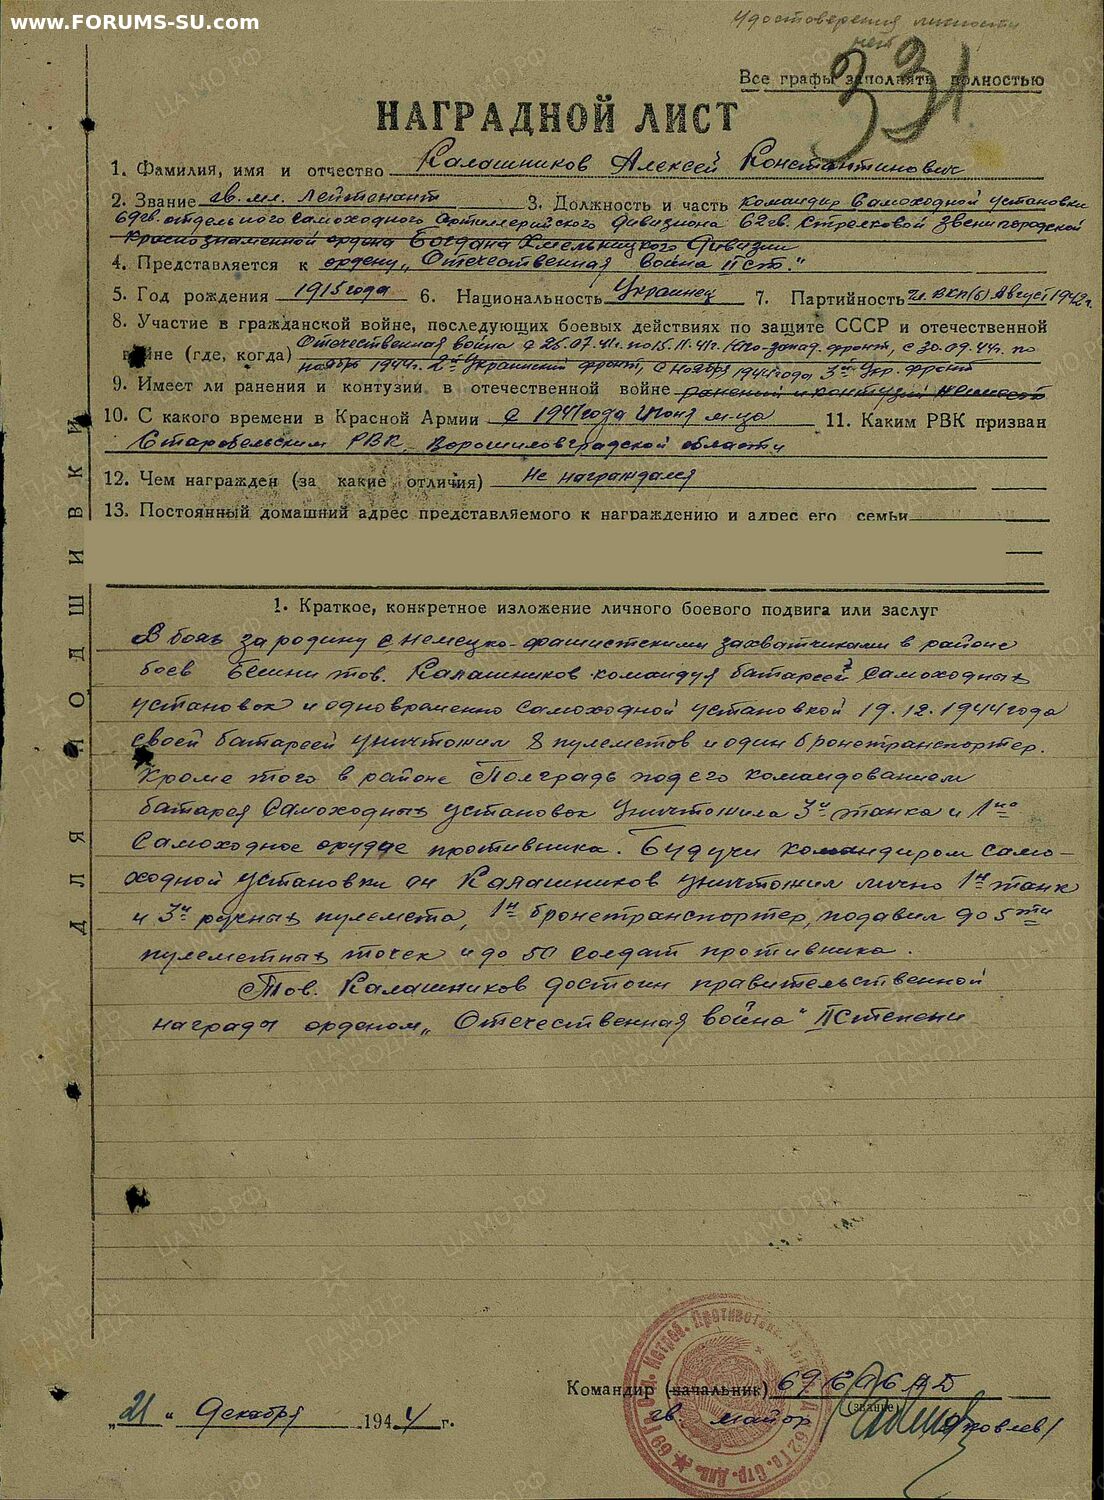 www.FORUMS-SU.com
Удостоверения личности
нет
331
Все графы заполнять полностью
НАГРАДНОЙ ЛИСТ
1. Фамилия, имя и отчество Калашников Алексей Константинович
2. Звание гв. мл. лейтенант 3. Должность и часть командир самоходной установки
69 гв. отдельного самоходного артиллерийского дивизиона 62 гв. стрелковой Звенигородской
Краснознаменной ордена Богдана Хмельницкого дивизии
4. Представляется к ордену „Отечественная война II ст."
5. Год рождения 1915 года 6. Национальность Украинец 7. Партийность чл. ВКП(б) Август 1942 г.
8. Участие в гражданской войне, последующих боевых действиях по защите СССР и отечественной
войне (где, когда) Отечественная война с 25.07.41г. по 15.11.41г. Юго-запад. фронт, с 30.09.44г. по
ноябрь 1944г. 2й Украинский фронт, с Ноября 1944 года 3й Укр. фронт
9. Имеет ли ранения и контузии в отечественной войне ранений и контузий не имеет
10. С какого времени в Красной Армии с 1941 года Июня м-ца 11. Каким РВК призван
Старобельским РВК, Ворошиловградской области
12. Чем награжден (за какие отличия) Не награждался
13. Постоянный домашний адрес представляемого к награждению и адрес его семьи
1. Краткое, конкретное изложение личного боевого подвига или заслуг
В боях за родину с немецко-фашистскими захватчиками в районе
боев Бешни тов. Калашников командуя батареей самоходных
установок и одновременно самоходной установкой 19.12.1944 года
своей батареей уничтожил 8 пулеметов и один бронетранспортер.
Кроме того в районе Полградь под его командованием
батарея самоходных установок уничтожила 3и танка и 1но
самоходное орудие противника. Будучи командиром само-
ходной установки он Калашников уничтожил лично 1н танк
и 3и ручных пулемета, 1н бронетранспортер, подавил до 5ти
пулеметных точек и до 50 солдат противника.
Тов. Калашников достоин правительственной
награды орденом „Отечественная война" II степени
ДЛЯ ПОДШИВКИ
Командир (начальник) 69 САД
(звание)
гв. майор /Яковлев/
„21" Декабря 1944 г.
69 Гв. Отд. Истреб. Противотанк. 62 Гв. Стр. Див.
ЦА МО РФ
ПАМЯТЬ НАРОДА